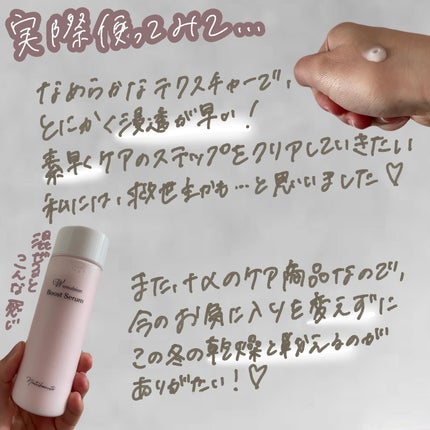 実際使ってみて...
なめらかなテクスチャーで、
とにかく浸透が早い!
素早くケアのステップをクリアしていきたい
私には、救世主かも…と思いました♡
混ぜると
こんな感じ
Boost Serum
また、+αのケア商品なので、
今のお気に入りを変えずに
この冬の乾燥と戦えるのが
ありがたい!♡